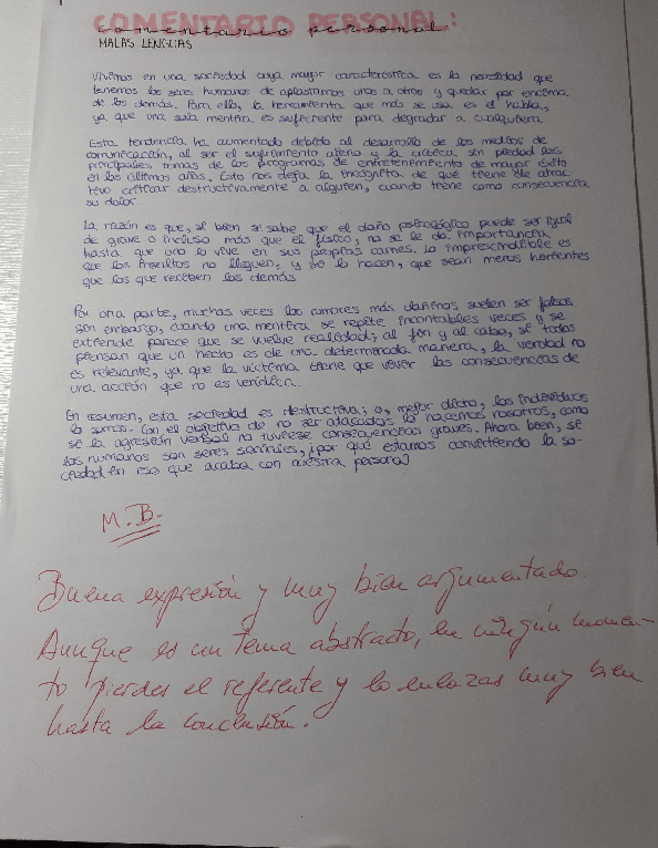 COMENTARIO PERSONAL:
comentario personal.
MALAS LENGUAS
Vivimos en una sociedad cuya mayor característica es la necesidad que
tenemos los seres humanos de aplastarnos unos a otros y quedar por encima
de los demás. Para ello, la herramienta que más se usa es el habla,
ya que una sola mentira es suficiente para degradar a cualquiera.
Esta tendencia ha aumentado debido al desarrollo de los medios de
comunicación, al ser el sufrimiento ajeno y la crítica sin piedad los
principales temas de los programas de entretenimiento de mayor éxito
en los últimos años. Esto nos deja la incógnita de qué tiene de atrac-
tivo criticar destructivamente a alguien, cuando tiene como consecuencia
su dolor.
La razón es que, si bien se sabe que el daño psicológico puede ser igual
de grave o incluso más que el físico, no se le da importancia
hasta que uno lo vive en sus propias carnes. Lo imprescindible es
que los insultos no lleguen, y si lo hacen, que sean menos hirientes
que los que reciben los demás.
Por otra parte, muchas veces los rumores más dañinos suelen ser falsos.
Sin embargo, cuando una mentira se repite incontables veces y se
extiende parece que se vuelve realidad; al fin y al cabo, si todos
piensan que un hecho es de una determinada manera, la verdad no
es relevante, ya que la víctima tiene que vivir las consecuencias de
una acción que no es verídica.
En resumen, esta sociedad es destructiva; o, mejor dicho, los individuos
lo somos. Con el objetivo de no ser atacados lo hacemos nosotros, como
si la agresión verbal no tuviese consecuencias graves. Ahora bien, si
los humanos son seres sociales, ¿por qué estamos convirtiendo la so-
ciedad en eso que acaba con nuestra persona?
M.B.
Buena expresión y muy bien argumentado.
Aunque es un tema abstracto, en ningún momen-
to pierdes el referente y lo enlazas muy bien
hasta la conclusión.